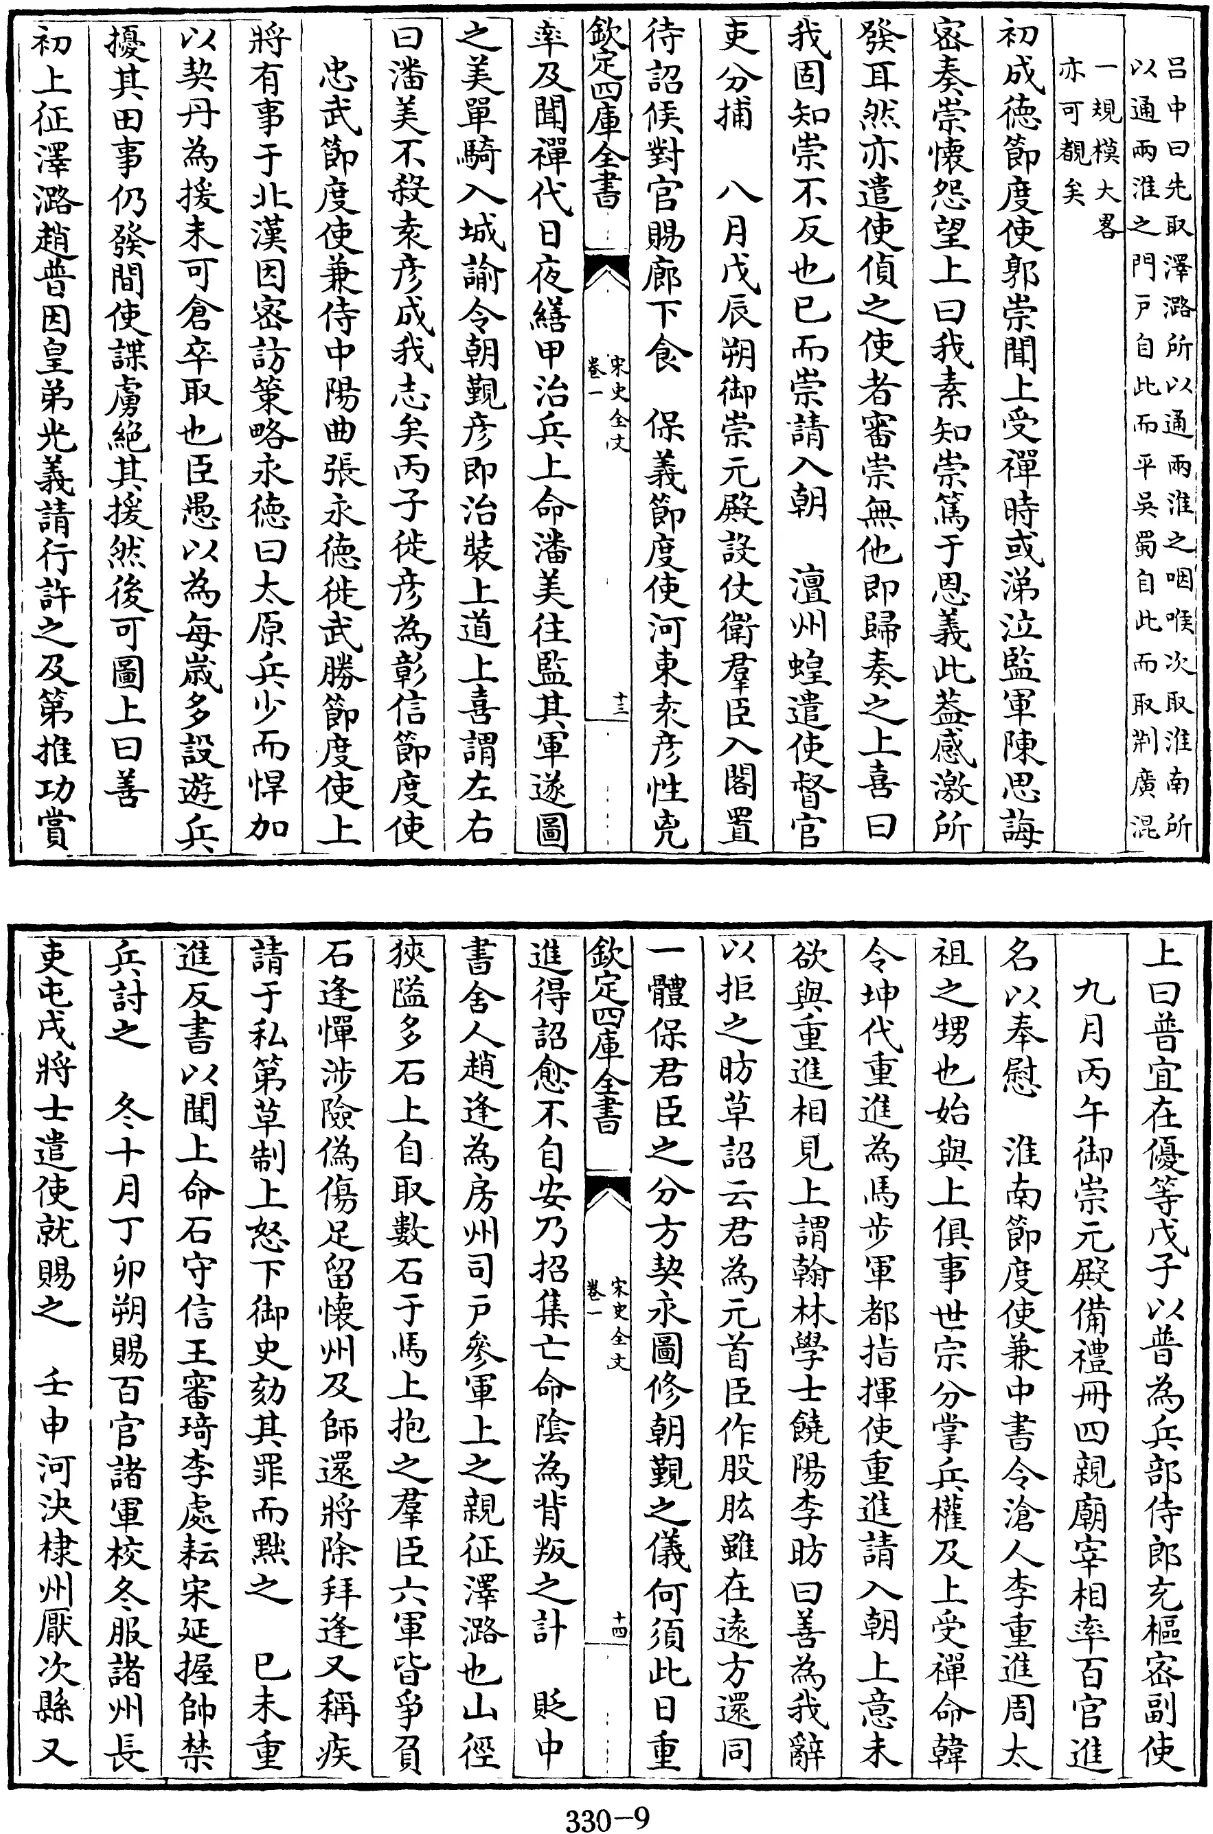 呂中曰先取澤潞所以通兩淮之咽喉次取淮南所
以通兩淮之門戸自此而平吳蜀自此而取荆廣混
一規模大畧
亦可覩矣
初成德節度使郭崇聞上受禪時或涕泣監軍陳思誨
密奏崇懐怨望上曰我素知崇篤于恩義此葢感激所
發耳然亦遣使偵之使者審崇無他即歸奏之上喜曰
我固知崇不反也已而崇請入朝　澶州蝗遣使督官
吏分捕　八月戊辰朔御崇元殿設仗衛羣臣入閤置
待詔候對官賜廊下食　保義節度使河東袁彦性兇
欽定四庫全書
宋史全文
卷一
十三
率及聞禪代日夜繕甲治兵上命潘美往監其軍遂圖
之美單騎入城諭令朝覲彦即治裝上道上喜謂左右
曰潘美不殺袁彦成我志矣丙子徙彦為彰信節度使
忠武節度使兼侍中陽曲張永德徙武勝節度使上
將有事于北漢因密訪策略永德曰太原兵少而悍加
以契丹為援未可倉卒取也臣愚以為每嵗多設遊兵
擾其田事仍發間使諜虜絶其援然後可圖上曰善
初上征澤潞趙普因皇弟光義請行許之及第推功賞
上曰普宜在優等戊子以普為兵部侍郎充樞密副使
九月丙午御崇元殿備禮冊四親廟宰相率百官進
名以奉慰　淮南節度使兼中書令滄人李重進周太
祖之甥也始與上俱事世宗分掌兵權及上受禪命韓
令坤代重進為馬步軍都指揮使重進請入朝上意未
欲與重進相見上謂翰林學士饒陽李昉曰善為我辭
以拒之昉草詔云君為元首臣作股肱雖在遠方還同
一體保君臣之分方契永圖修朝覲之儀何須此日重
欽定四庫全書
宋史全文
卷一
十四
進得詔愈不自安乃招集亡命隂為背叛之計　貶中
書舍人趙逢為房州司戸參軍上之親征澤潞也山徑
狹隘多石上自取數石于馬上抱之羣臣六軍皆爭負
石逢憚涉險偽傷足留懐州及師還將除拜逢又稱疾
請于私第草制上怒下御史劾其罪而黜之　已未重
進反書以聞上命石守信王審琦李處耘宋延握帥禁
兵討之　冬十月丁卯朔賜百官諸軍校冬服諸州長
吏屯戍將士遣使就賜之　壬申河決棣州厭次縣又
330-9